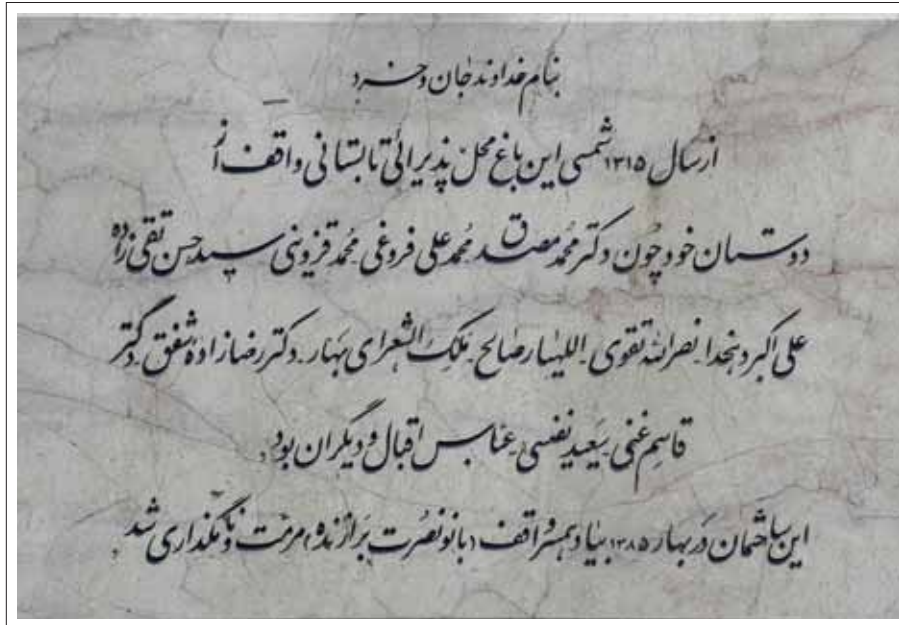 بنام خداوند جان و خرد
از سال ۱۳۱۵ شمسی این باغ محل پذیرائی تابستانی واقف از
دوستان خود چون دکتر محمد مصدق محمد علی فروغی محمد قزوینی سید حسن تقی زاده
علی اکبر دهخدا نصرالله تقوی اللهیار صالح ملک الشعرای بهار دکتر رضازاده شفق دکتر
قاسم غنی سعید نفیسی عباس اقبال و دیگران بود
این ساختمان در بهار ۱۳۸۵ بیاد همسر واقف (بانو نصرت برازنده) مرمت و نامگذاری شد